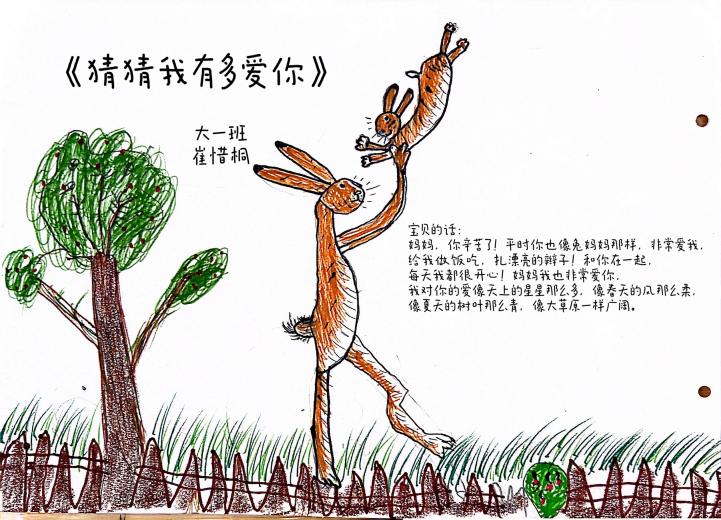 《猜猜我有多爱你》
大一班
崔惜桐
宝贝的话:
妈妈，你辛苦了！平时你也像兔妈妈那样，非常爱我，
给我做饭吃，扎漂亮的辫子！和你在一起，
每天我都很开心！妈妈我也非常爱你，
我对你的爱像天上的星星那么多，像春天的风那么柔，
像夏天的树叶那么青，像大草原一样广阔。